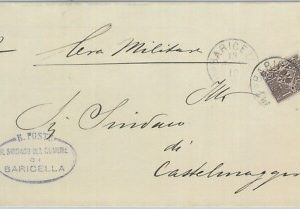 Cera Militare
BARICEL
10
Ill
Sig Sindaco
di
Castelmaggio
R. POSTA
IL SINDACO DEL COMUNE
DI
BARICELLA